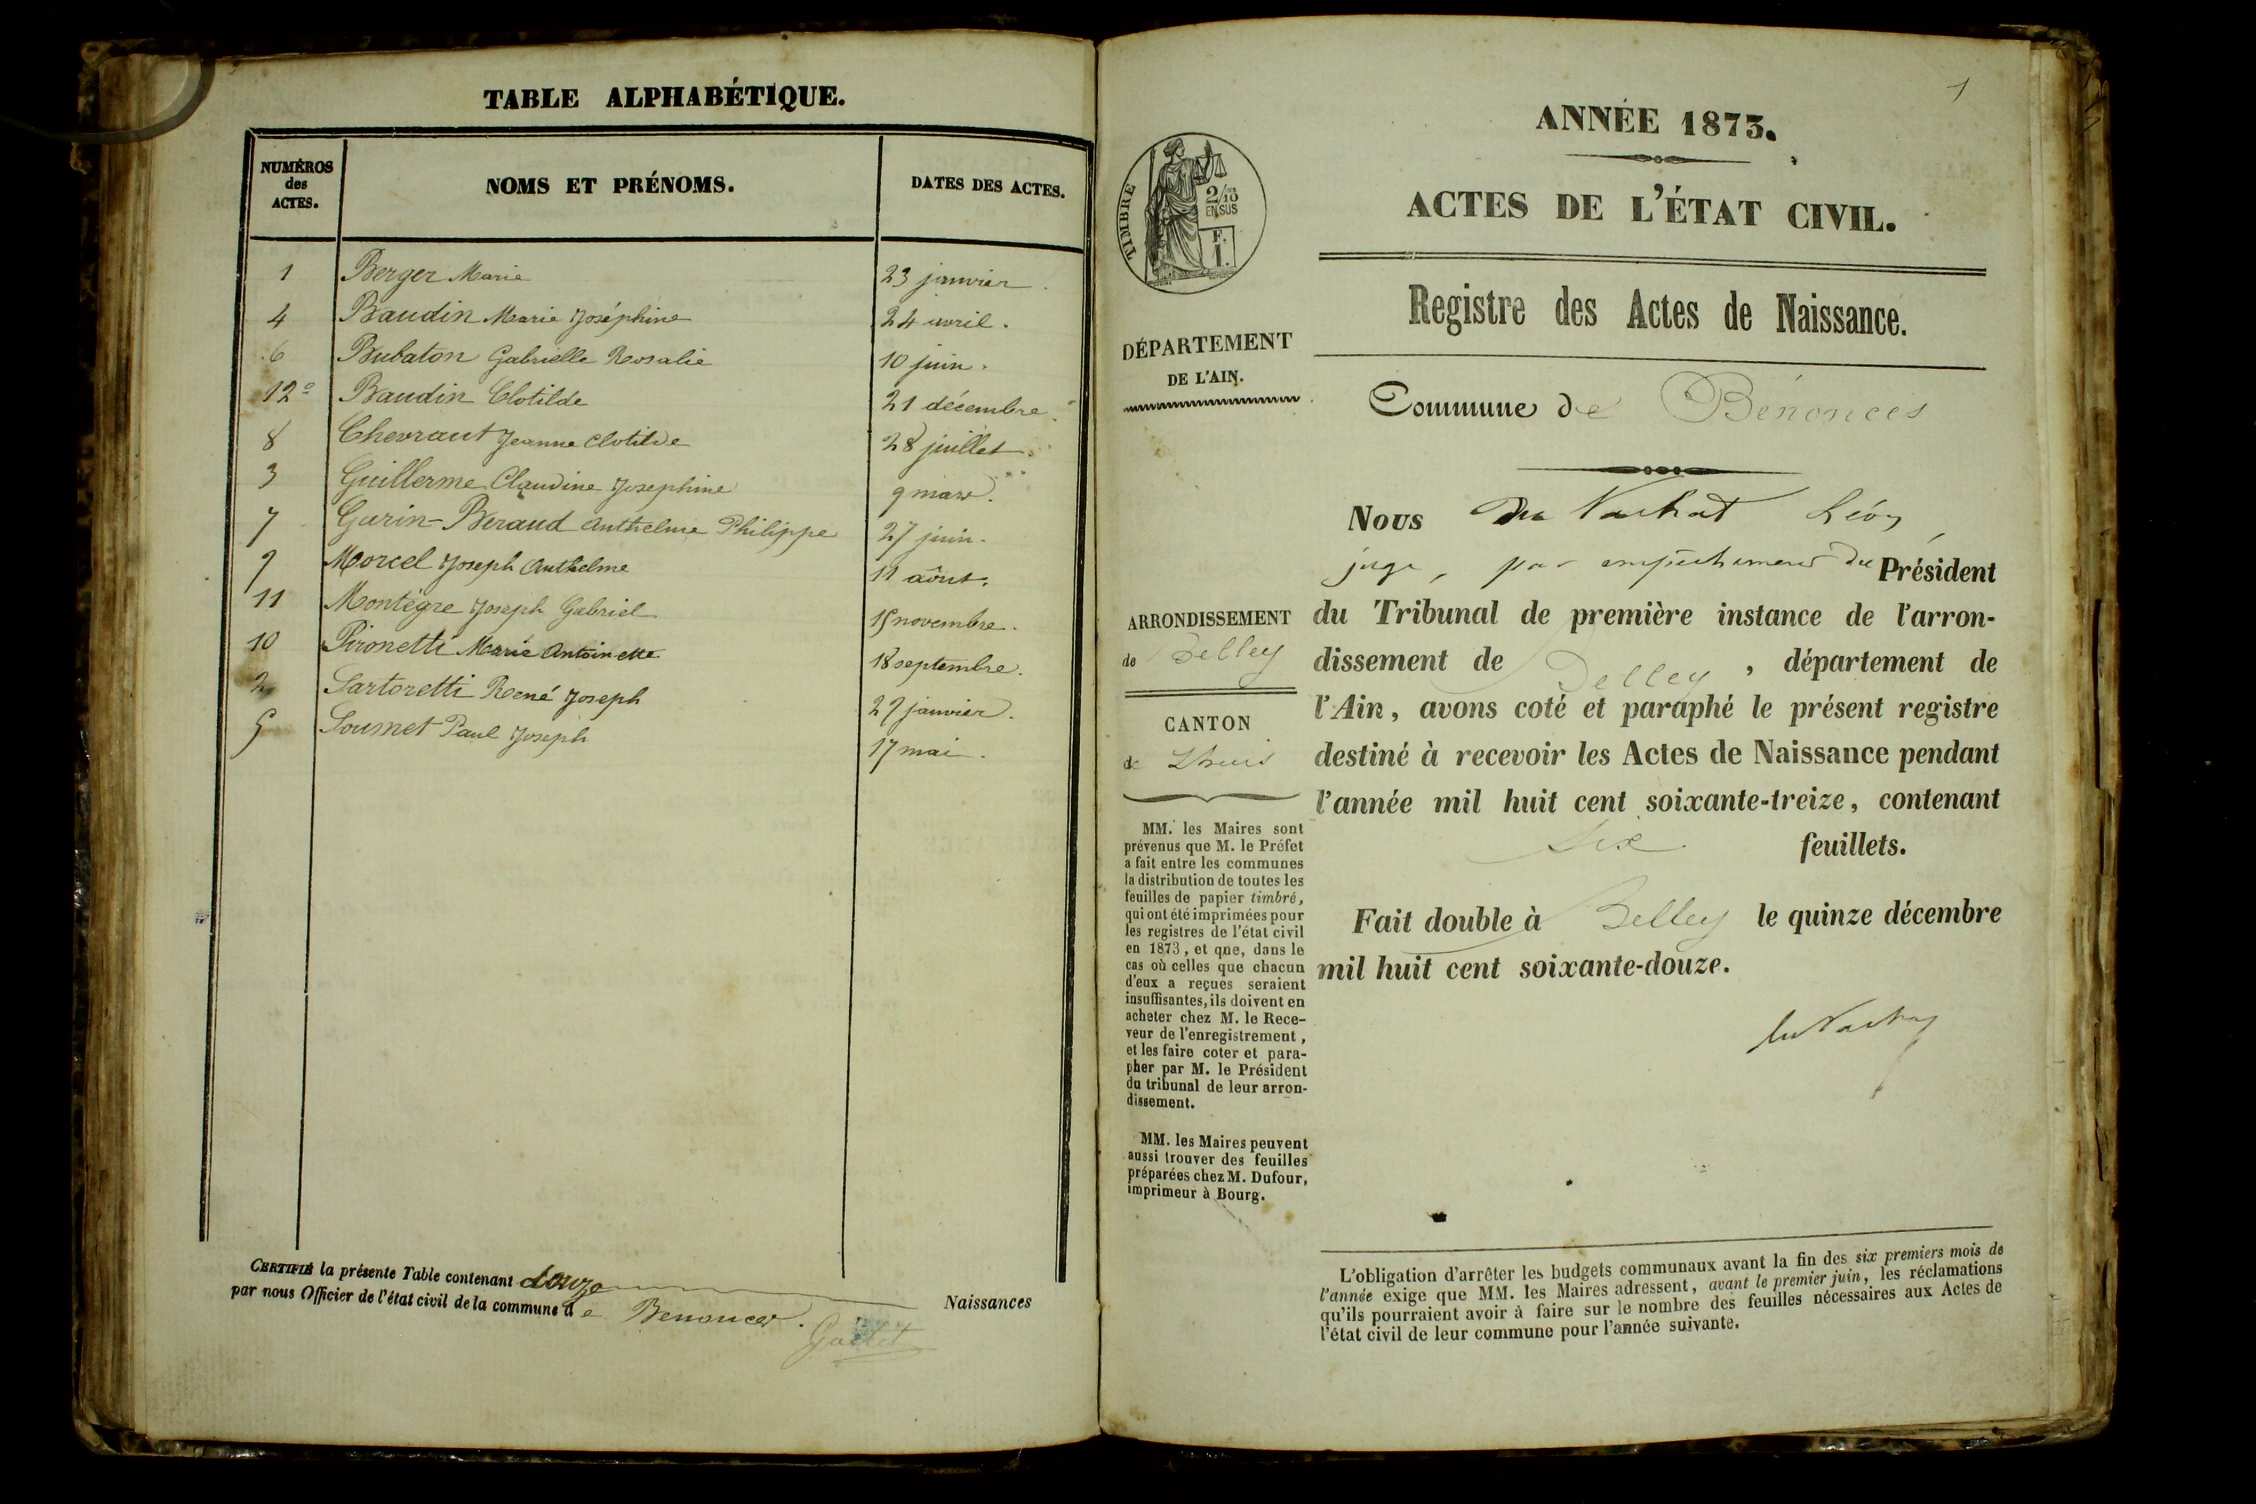 TABLE ALPHABÉTIQUE.
NUMÉROS des ACTES.
NOMS ET PRÉNOMS.
DATES DES ACTES.
1 Berger Marie 23 janvier.
4 Baudin Marie Joséphine 24 avril.
6 Bubaton Gabrielle Rosalie 10 juin.
12º Baudin Clotilde 21 décembre.
8 Chevraut Jeanne Clotilde 28 juillet.
3 Guillerme Claudine Josephine 9 mars.
7 Garin-Beraud Anthelme Philippe 27 juin.
9 Morcel Joseph Anthelme 11 aôut.
11 Montègre Joseph Gabriel 15 novembre.
10 Pironetti Marie Antoinette 18 septembre.
2 Sartoretti René Joseph 29 janvier.
5 Soumet Paul Joseph 17 mai.
CERTIFIÉ la présente Table contenant douze Naissances
par nous Officier de l'état civil de la commune de Benonces.
1
ANNÉE 1873.
ACTES DE L'ÉTAT CIVIL.
Registre des Actes de Naissance.
TIMBRE
2/10 EN SUS
F. 1.
DÉPARTEMENT
DE L'AIN.
Commune de Bénonces
ARRONDISSEMENT
de Belley
CANTON
de Lhuis
MM. les Maires sont
prévenus que M. le Préfet
a fait entre les communes
la distribution de toutes les
feuilles de papier timbré,
qui ont été imprimées pour
les registres de l'état civil
en 1873, et qne, dans le
cas où celles que chacun
d'eux a reçues seraient
insuffisantes, ils doivent en
acheter chez M. le Rece-
veur de l'enregistrement,
et les faire coter et para-
pher par M. le Président
du tribunal de leur arron-
dissement.
MM. les Maires peuvent
aussi trouver des feuilles
préparées chez M. Dufour,
imprimeur à Bourg.
Nous Du Vachat Léon,
juge, par empêchement du Président
du Tribunal de première instance de l'arron-
dissement de Belley, département de
l'Ain, avons coté et paraphé le présent registre
destiné à recevoir les Actes de Naissance pendant
l'année mil huit cent soixante-treize, contenant
Six feuillets.
Fait double à Belley le quinze décembre
mil huit cent soixante-douze.
du Vachat
L'obligation d'arrêter les budgets communaux avant la fin des six premiers mois de
l'année exige que MM. les Maires adressent, avant le premier juin, les réclamations
qu'ils pourraient avoir à faire sur le nombre des feuilles nécessaires aux Actes de
l'état civil de leur commune pour l'année suivante.